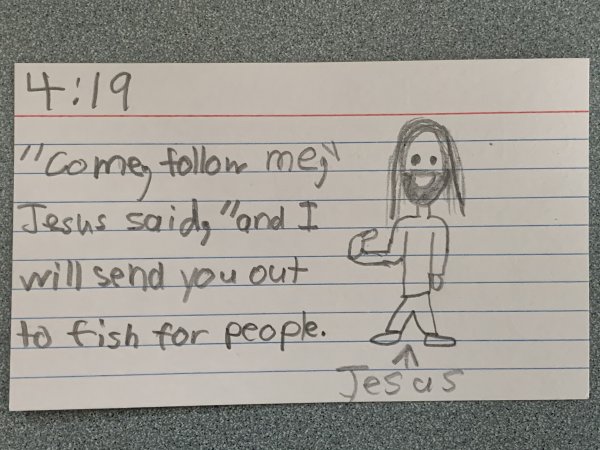 4:19
"Come, follow me,"
Jesus said, "and I
will send you out
to fish for people.
Jesus